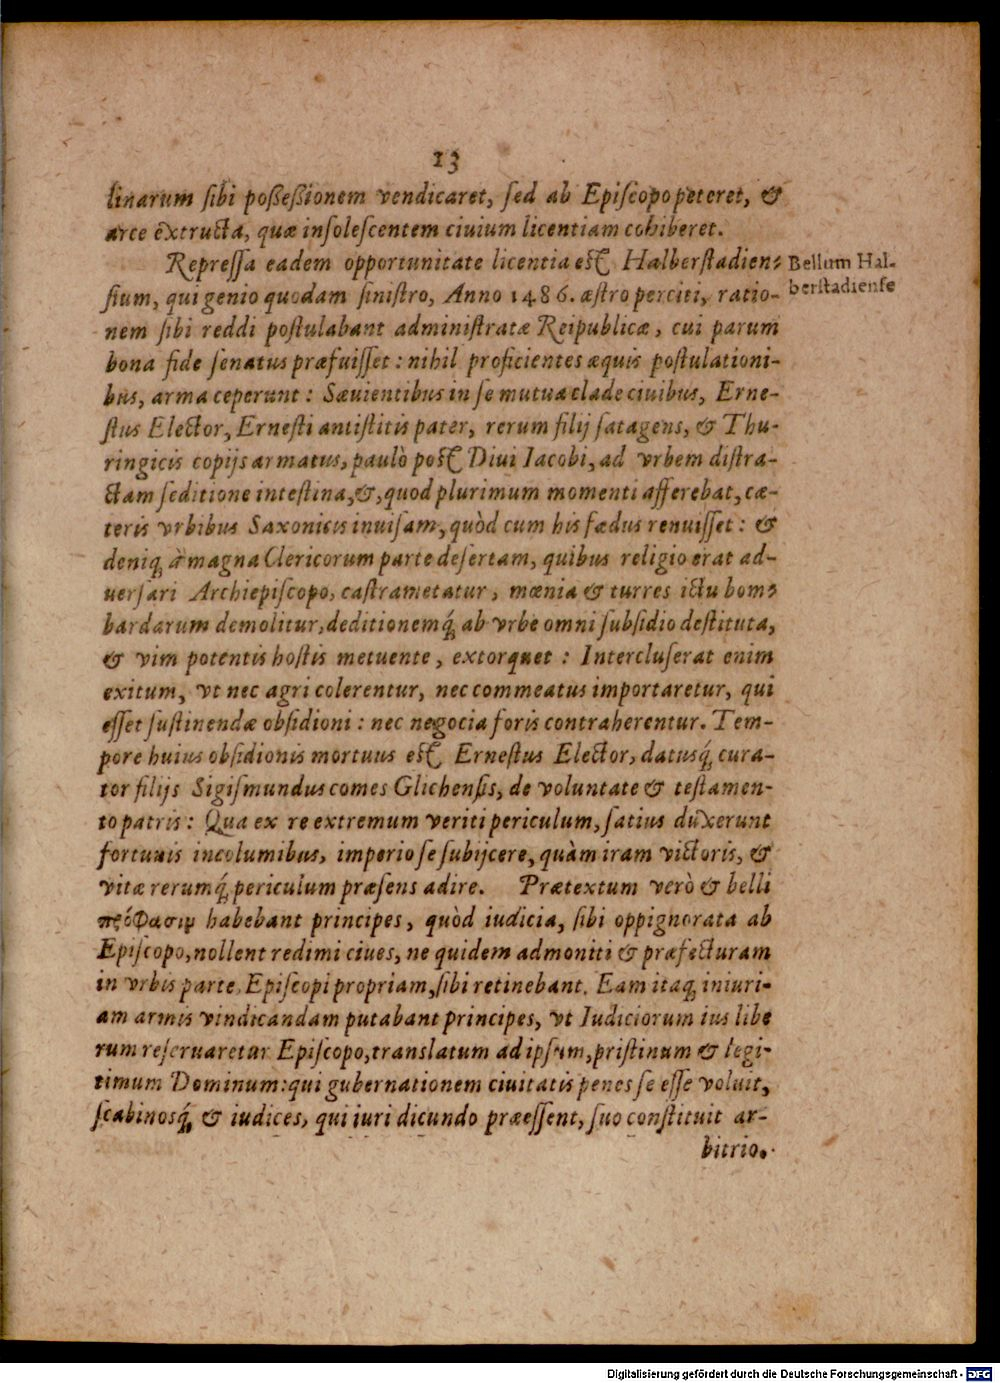 13
linarum ſibi poßeßionem vendicaret, ſed ab Epiſcopo peteret, &
arce extructa, quæ inſoleſcentem ciuium licentiam cohiberet.
Repreſſa eadem opportunitate licentia eſt Halberſtadien⸗
Bellum Hal-
berſtadienſe
ſium, qui genio quodam ſiniſtro, Anno 1486. æſtro perciti, ratio-
nem ſibi reddi poſtulabant adminiſtratæ Reipublicæ, cui parum
bona fide ſenatus præfuiſſet: nihil proficientes æquis poſtulationi-
bus, arma ceperunt: Sæuientibus in ſe mutua clade ciuibus, Erne-
ſtus Elector, Erneſti antiſtitis pater, rerum filij ſatagens, & Thu-
ringicis copijs armatus, paulò poſt Diui Iacobi, ad vrbem diſtra-
ctam ſeditione inteſtina, &, quod plurimum momenti afferebat, cæ-
teris vrbibus Saxonicis inuiſam, quòd cum his fœdus renuiſſet: &
deniq; à magna Clericorum parte deſertam, quibus religio erat ad-
uerſari Archiepiſcopo, caſtrametatur, mœnia & turres ictu bom⸗
bardarum demolitur, deditionemq́; ab vrbe omni ſubſidio deſtituta,
& vim potentis hoſtis metuente, extorquet: Intercluſerat enim
exitum, vt nec agri colerentur, nec commeatus importaretur, qui
eſſet ſuſtinendæ obſidioni: nec negocia foris contraherentur. Tem-
pore huius obſidionis mortuus eſt Erneſtus Elector, datusq́; cura-
tor filijs Sigiſmundus comes Glichenſis, de voluntate & teſtamen-
to patris: Qua ex re extremum veriti periculum, ſatius duxerunt
fortunis incolumibus, imperio ſe ſubijcere, quàm iram victoris, &
vitæ rerumq́; periculum præſens adire. Prætextum verò & belli
πρόφασιν habebant principes, quòd iudicia, ſibi oppignorata ab
Epiſcopo, nollent redimi ciues, ne quidem admoniti & præfecturam
in vrbis parte, Epiſcopi propriam, ſibi retinebant. Eam itaq; iniuri-
am armis vindicandam putabant principes, vt Iudiciorum ius libe
rum reſeruaretur Epiſcopo, translatum ad ipſum, priſtinum & legi-
timum Dominum: qui gubernationem ciuitatis penes ſe eſſe voluit,
ſcabinosq́; & iudices, qui iuri dicundo præeſſent, ſuo conſtituit ar-
bitrio.
Digitalisierung gefördert durch die Deutsche Forschungsgemeinschaft - DFG